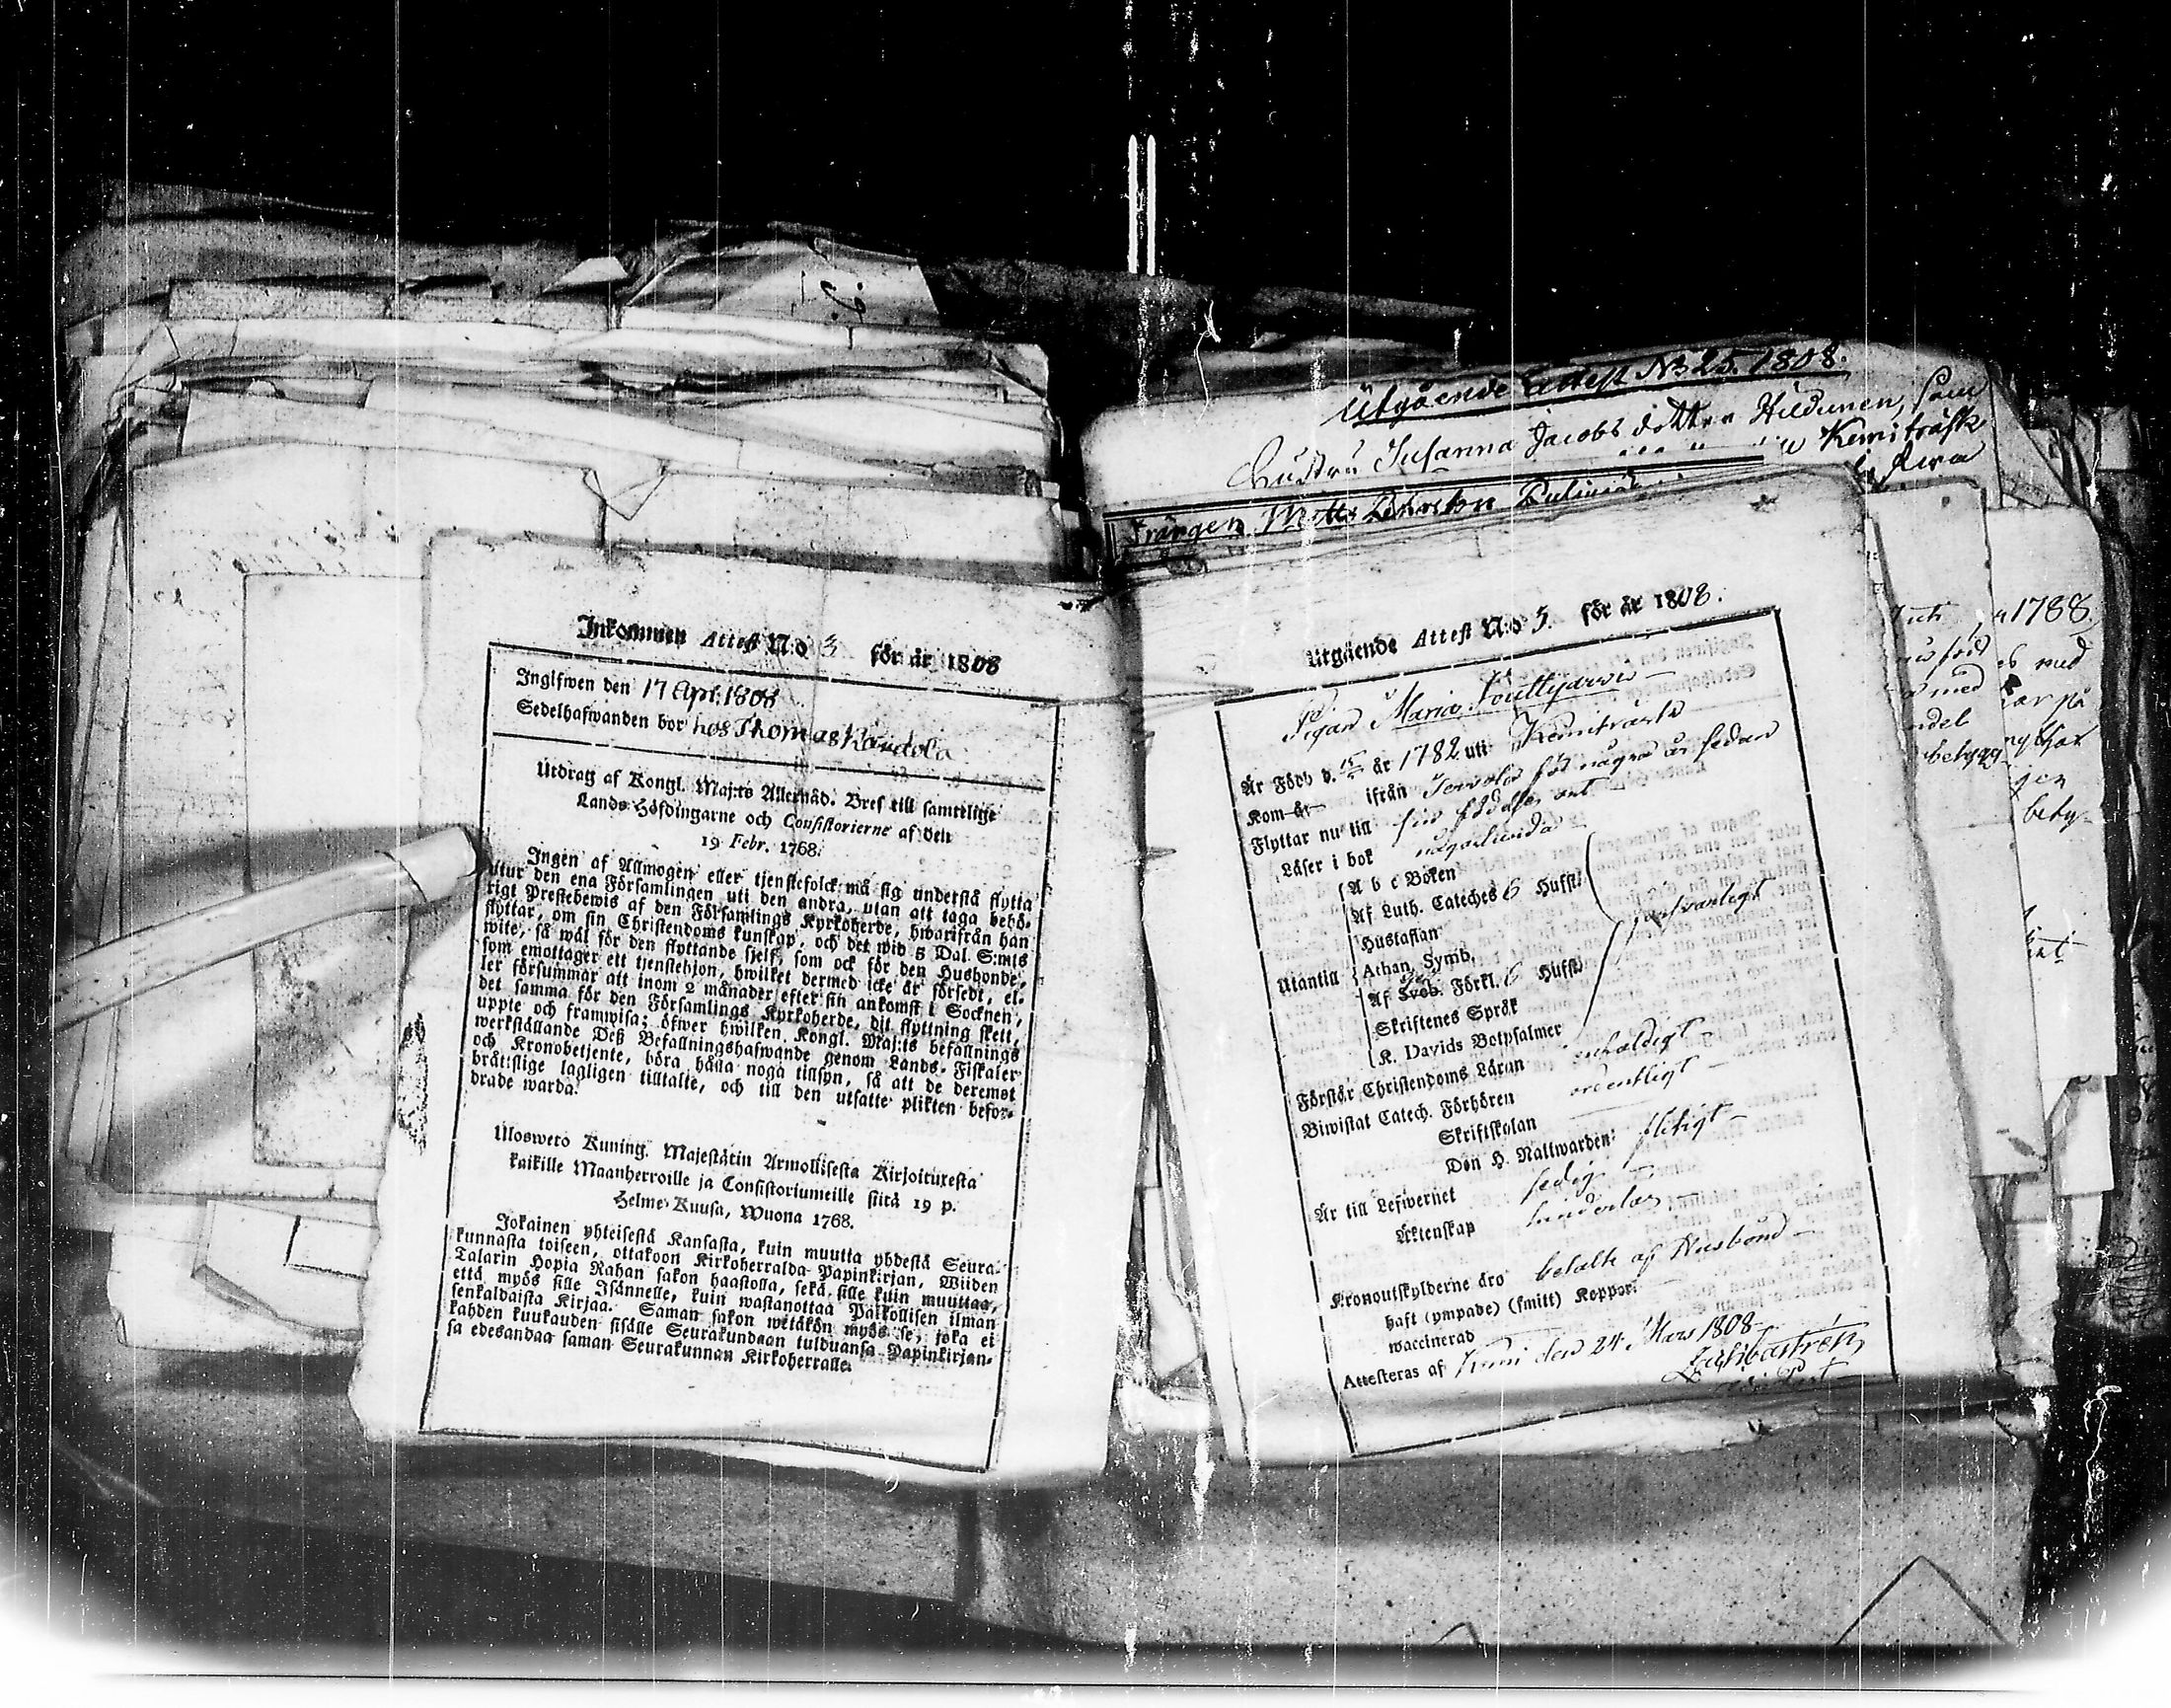 Inkommen Attest N:o 3 för år 1808
Inglfwen den 17 Apr. 1808
Sedelhafwanden bor hos Thomas Kandola
Utdrag af Kongl. Maj:ts Allernåd. Bref till samtelige
Lands-Höfdingarne och Consistorierne af den
19 Febr. 1768.
Ingen af Allmogen eller tjenstefolck må sig understå flytta
utur den ena Församlingen uti den andra, utan att taga behö-
rigt Prestebewis af den Församlings Kyrkoherde, hwarifrån han
flyttar, om sin Christendoms kunskap, och det wid 5 Dal. S:mts
wite, så wäl för den flyttande sjelf, som ock för den Husbonde,
som emottager ett tjenstehjon, hwilket dermed icke är försedt, el-
ler försummar att inom 2 månader efter sin ankomst i Socknen,
det samma för den Församlings Kyrkoherde, dit flyttning skett,
uppte och framwisa; öfwer hwilken Kongl. Maj:ts befallnings
werkställande Deß Befallningshafwande genom Lands-Fiskaler
och Kronobetjente, böra hålla noga tillsyn, så att de deremot
bråtslige lagligen tilltalte, och till den utsatte plikten befor-
drade warda.
Ulosweto Kuning. Majestätin Armollisesta Kirjoituxesta
kaikille Maanherroille ja Consistoriumeille siitä 19 p.
Helme-Kuusa, Wuona 1768.
Jokainen yhteisestä Kansasta, kuin muutta yhdestä Seura-
kunnasta toiseen, ottakoon Kirkoherralda Papinkirjan, Wiiden
Talarin Hopia Rahan sakon haastolla, sekä sille kuin muuttaa,
että myös sille Isännelle, kuin wastanottaa Palkollisen ilman
senkaldaista Kirjaa. Saman sakon wetäkön myös se, joka ei
kahden kuukauden sisälle Seurakundaan tulduansa Papinkirjan-
sa edesandaa saman Seurakunnan Kirkoherralle.
Utgående Attest No 25. 1808.
Hustru Susanna Jacobs dotter Hildunen, som
Kemiträsk
Drängen Matts
Utgående Attest N:o 5. för år 1808.
Pigan Maria
Är Född d. år 1782 uti Kemiträsk
Kom år ifrån Tervola för några år sedan
Flyttar nu till sin födelse ort
Läser i bok någorlunda
A b c Boken
Af Luth. Cateches 6 Hufst.
Hustaflan
Athan. Symb.
Utantill
Af Sveb. Förkl. 6 Hufst.
försvarligt
Skriftenes Språk
K. Davids Botpsalmer
Förstår Christendoms Läran enfaldigt
Biwistat Catech. Förhören ordentligt
Skriftskolan
Den H. Nattwarden flitigt
Är till Lefwernet sedig
Äktenskap hinderlös
Kronoutskylderne äro betalte af Husbond
haft (ympade) (smitt) Koppor
waccinerad
Attesteras af Kemi den 24 Mars 1808
1788.